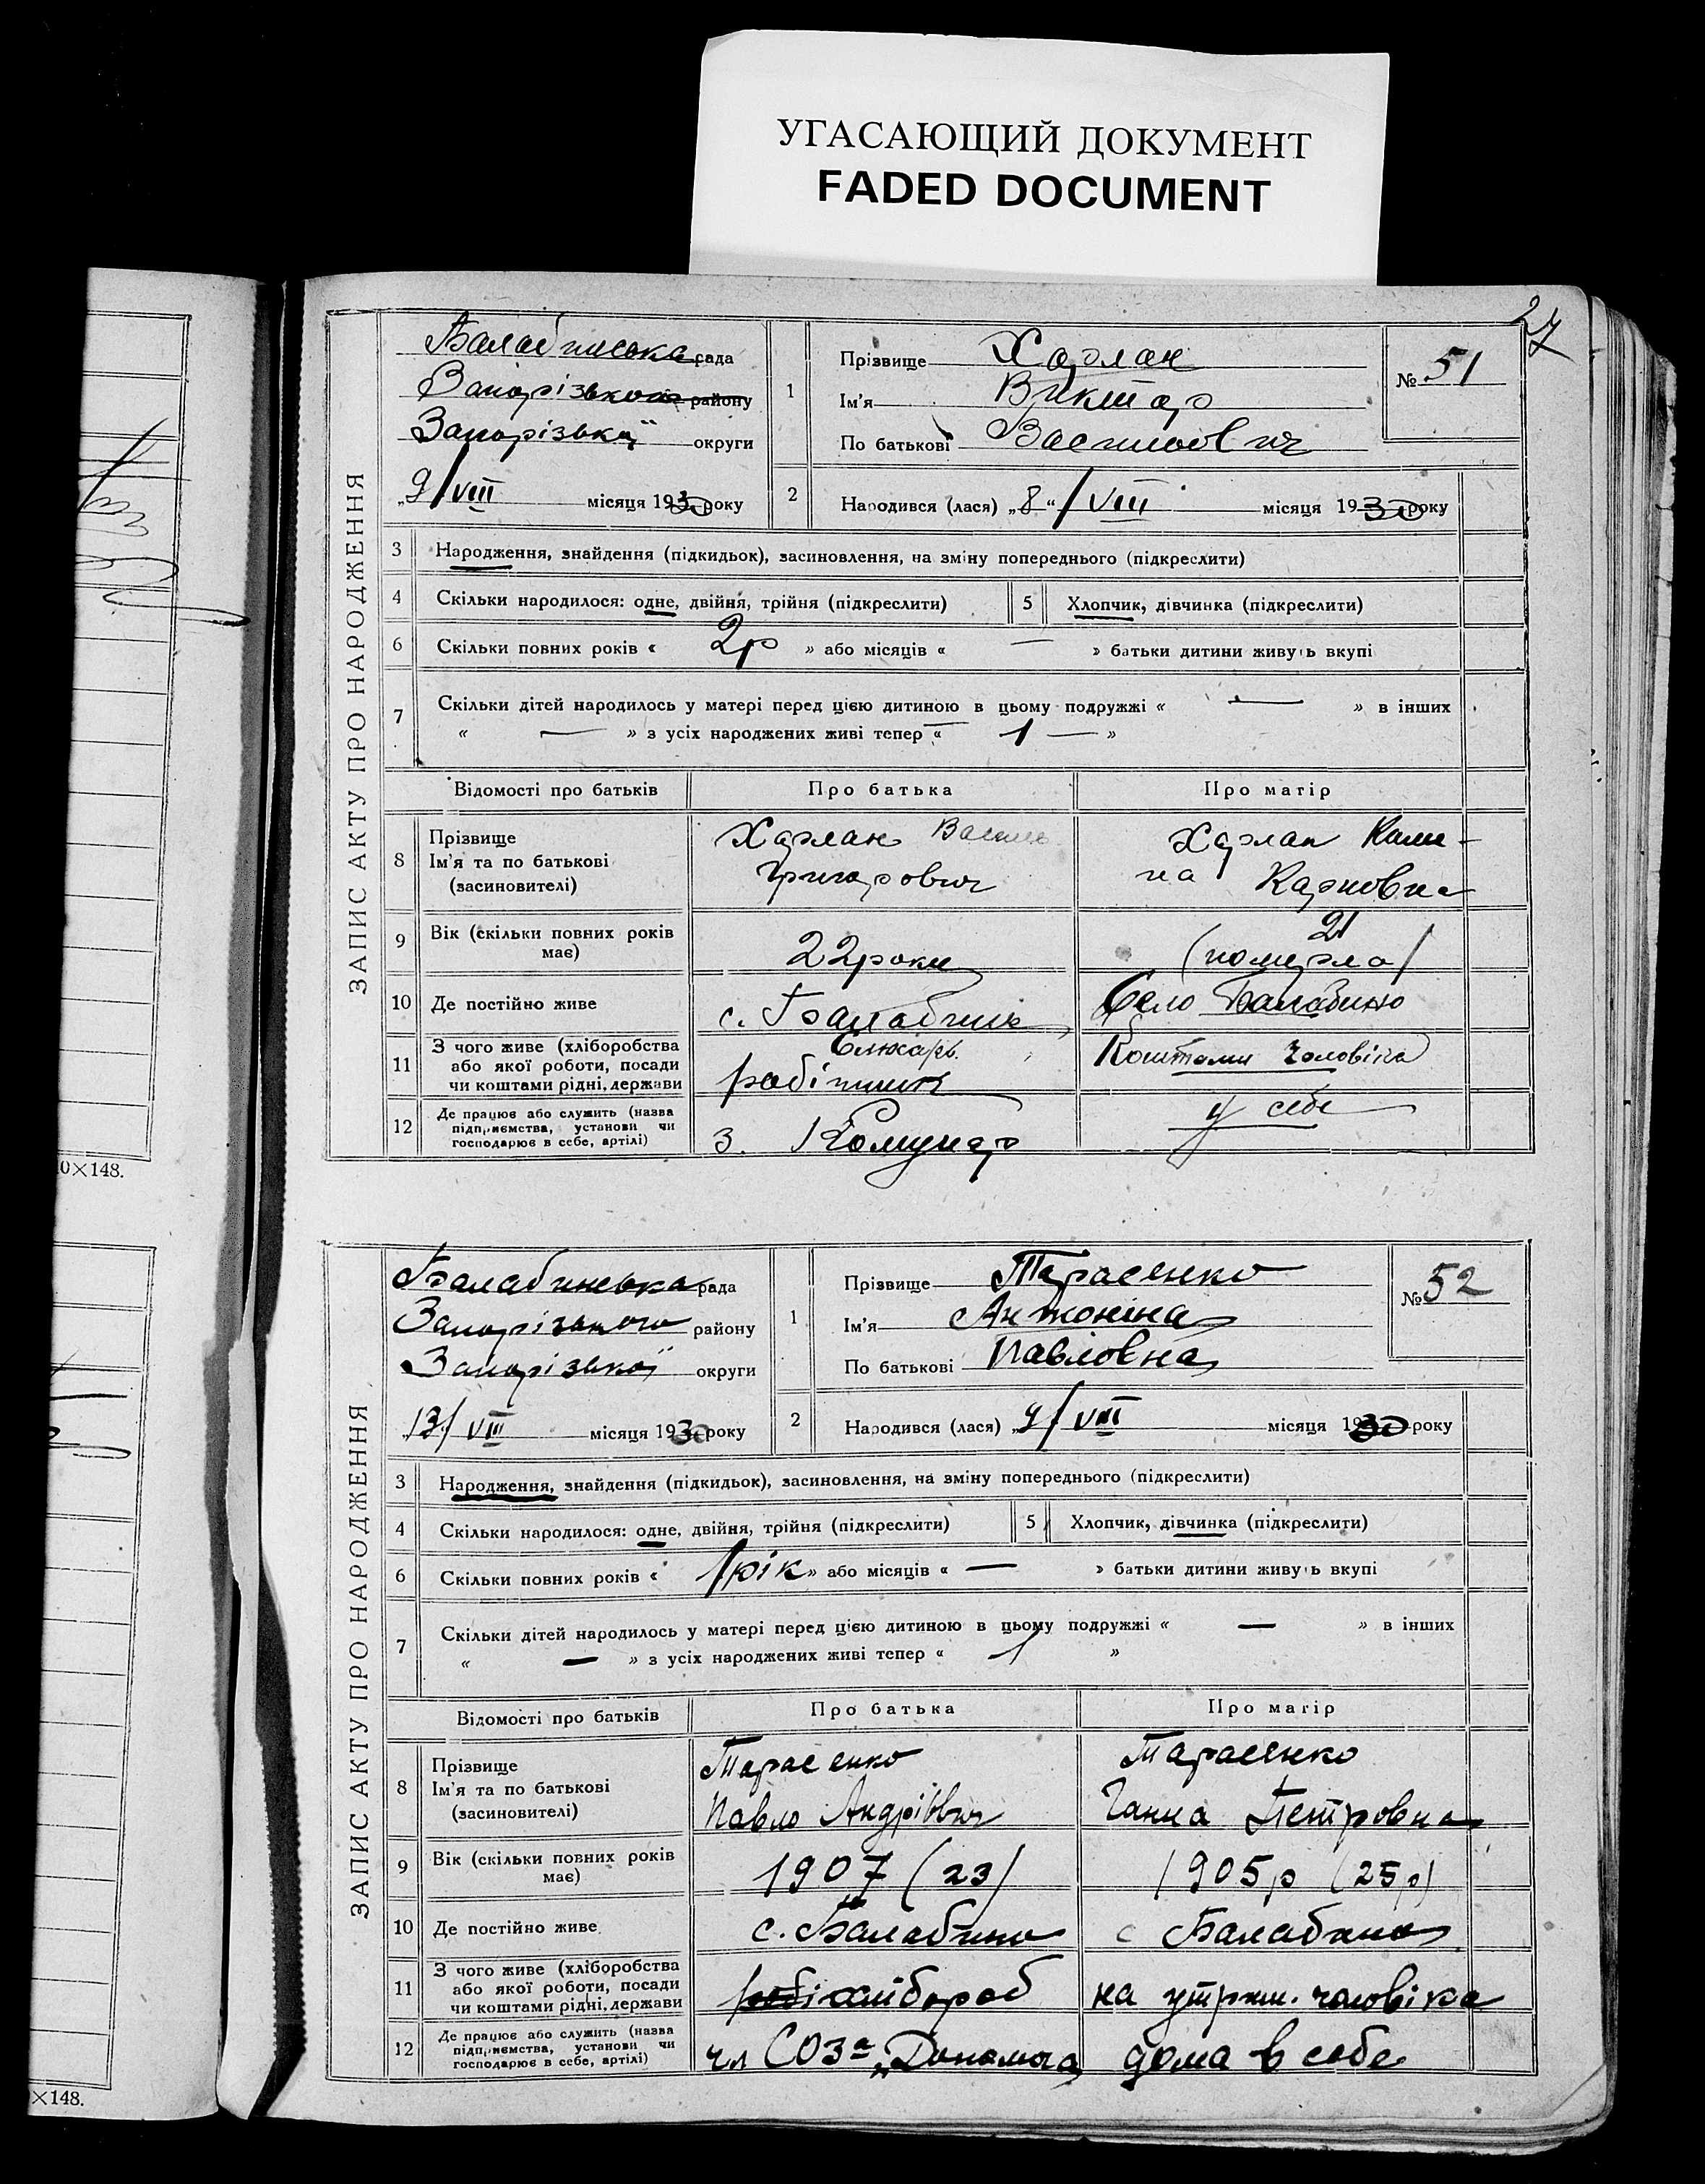 УГАСАЮЩИЙ ДОКУМЕНТ
FADED DOCUMENT
27
0×148.
×148.
ЗАПИС АКТУ ПРО НАРОДЖЕННЯ
Балабинська рада
Запорізького району
Запорізької округи
9/VIII місяця 1930 року
1 Прізвище Харлан
Ім'я Виктор
По батькові Васильович
№ 51
2 Народився (лася) „8“/VIII місяця 1930 року
3 Народження, знайдення (підкидьок), засиновлення, на зміну попереднього (підкреслити)
4 Скільки народилося: одне, двійня, трійня (підкреслити) 5 Хлопчик, дівчинка (підкреслити)
6 Скільки повних років « 2р » або місяців « — » батьки дитини живуть вкупі
7 Скільки дітей народилось у матері перед цією дитиною в цьому подружжі « — » в інших
« — » з усіх народжених живі тепер « 1 — »
Відомості про батьків Про батька Про матір
8 Прізвище
Ім'я та по батькові
(засиновителі)
Харлан Василь
Григорович
Харлан Кали-
на Карповна
9 Вік (скільки повних років
має)
22 роки
21
(померла)
10 Де постійно живе
с. Балабине
Село Балабино
11 З чого живе (хліборобства
або якої роботи, посади
чи коштами рідні, держави
Слюсарь.
робітник
Коштами чоловіка
12 Де працює або служить (назва
підприємства, установи чи
господарює в себе, артілі)
З. Комунар
у себе
ЗАПИС АКТУ ПРО НАРОДЖЕННЯ
Балабинська рада
Запорізького району
Запорізької округи
13/VIII місяця 1930 року
1 Прізвище Тарасенко
Ім'я Антоніна
По батькові Павловна
№ 52
2 Народився (лася) „9/VIII місяця 1930 року
3 Народження, знайдення (підкидьок), засиновлення, на зміну попереднього (підкреслити)
4 Скільки народилося: одне, двійня, трійня (підкреслити) 5 Хлопчик, дівчинка (підкреслити)
6 Скільки повних років « 1 рік » або місяців « — » батьки дитини живуть вкупі
7 Скільки дітей народилось у матері перед цією дитиною в цьому подружжі « — » в інших
« — » з усіх народжених живі тепер « 1 »
Відомості про батьків Про батька Про матір
8 Прізвище
Ім'я та по батькові
(засиновителі)
Тарасенко
Павло Андрієвич
Тарасенко
Ганна Петровна
9 Вік (скільки повних років
має)
1907 (23)
1905р (25р)
10 Де постійно живе
с. Балабино
с Балабино
11 З чого живе (хліборобства
або якої роботи, посади
чи коштами рідні, держави
робі хлібороб
на утрим. чоловіка
12 Де працює або служить (назва
підприємства, установи чи
господарює в себе, артілі)
чл СОЗа „Допомога
дома в себе